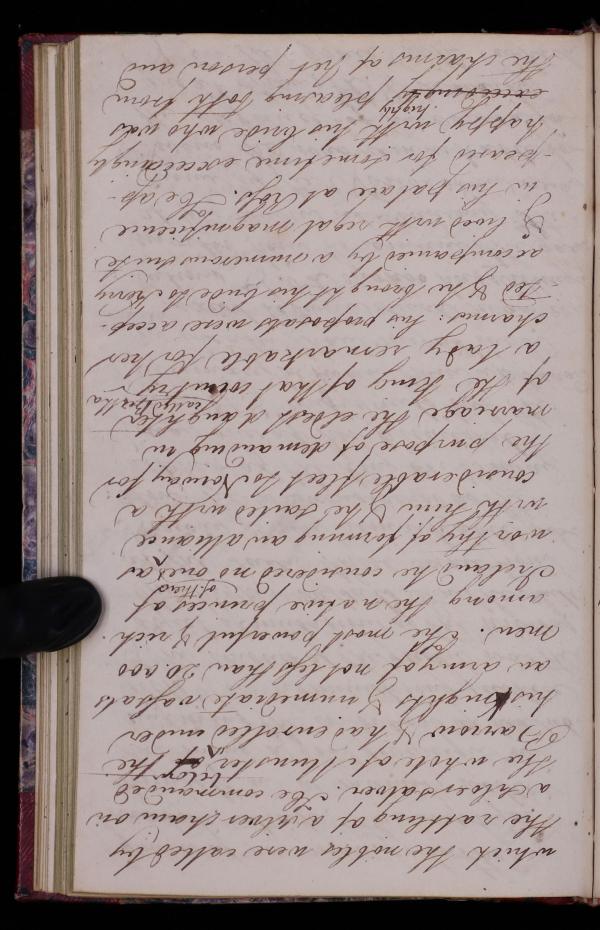 which the nobles were called by
the rattling of a silver chain on
a silver salver. He commanded
the whole of Munster below the
Barrow & had enrolled under
his Knights & immediate vassals
an army of not less than 20.000
men. The most powerful & rich
among the native princes of
Ireland he considered no one of them as
worthy of forming an alliance
with him & he sailed with a
considerable fleet to Norway for
the purpose of demanding in
marriage the eldest daughter
of the King of that country called Bertha
a lady remarkable for her
charms: his proposals were accep-
-ted & he brought his bride to Kerry
accompanied by a numerous suite
& lived with regal magnificence
in his palace at Ross. He ap-
-peared for sometime exceedingly
happy with his bride who was
exceedingly highly pleasing both from
the charms of her person and